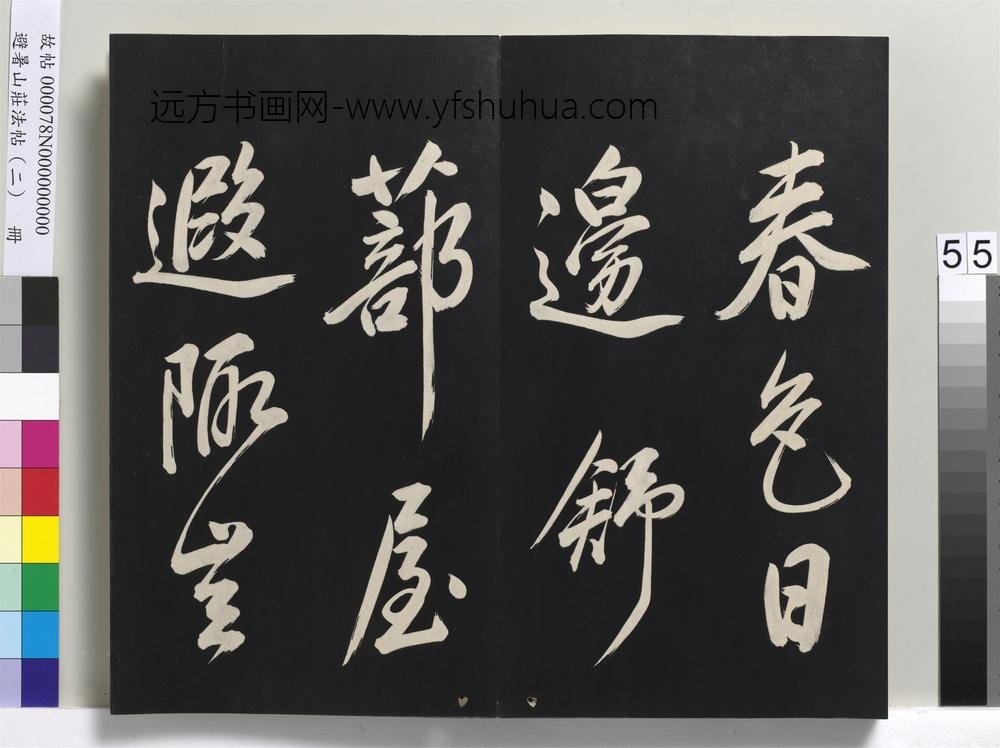 春色日
邊舒
蔀屋
遐陬豈
远方书画网-www.yfshuhua.com
故帖 000078N000000000
避暑山莊法帖（二） 冊
55